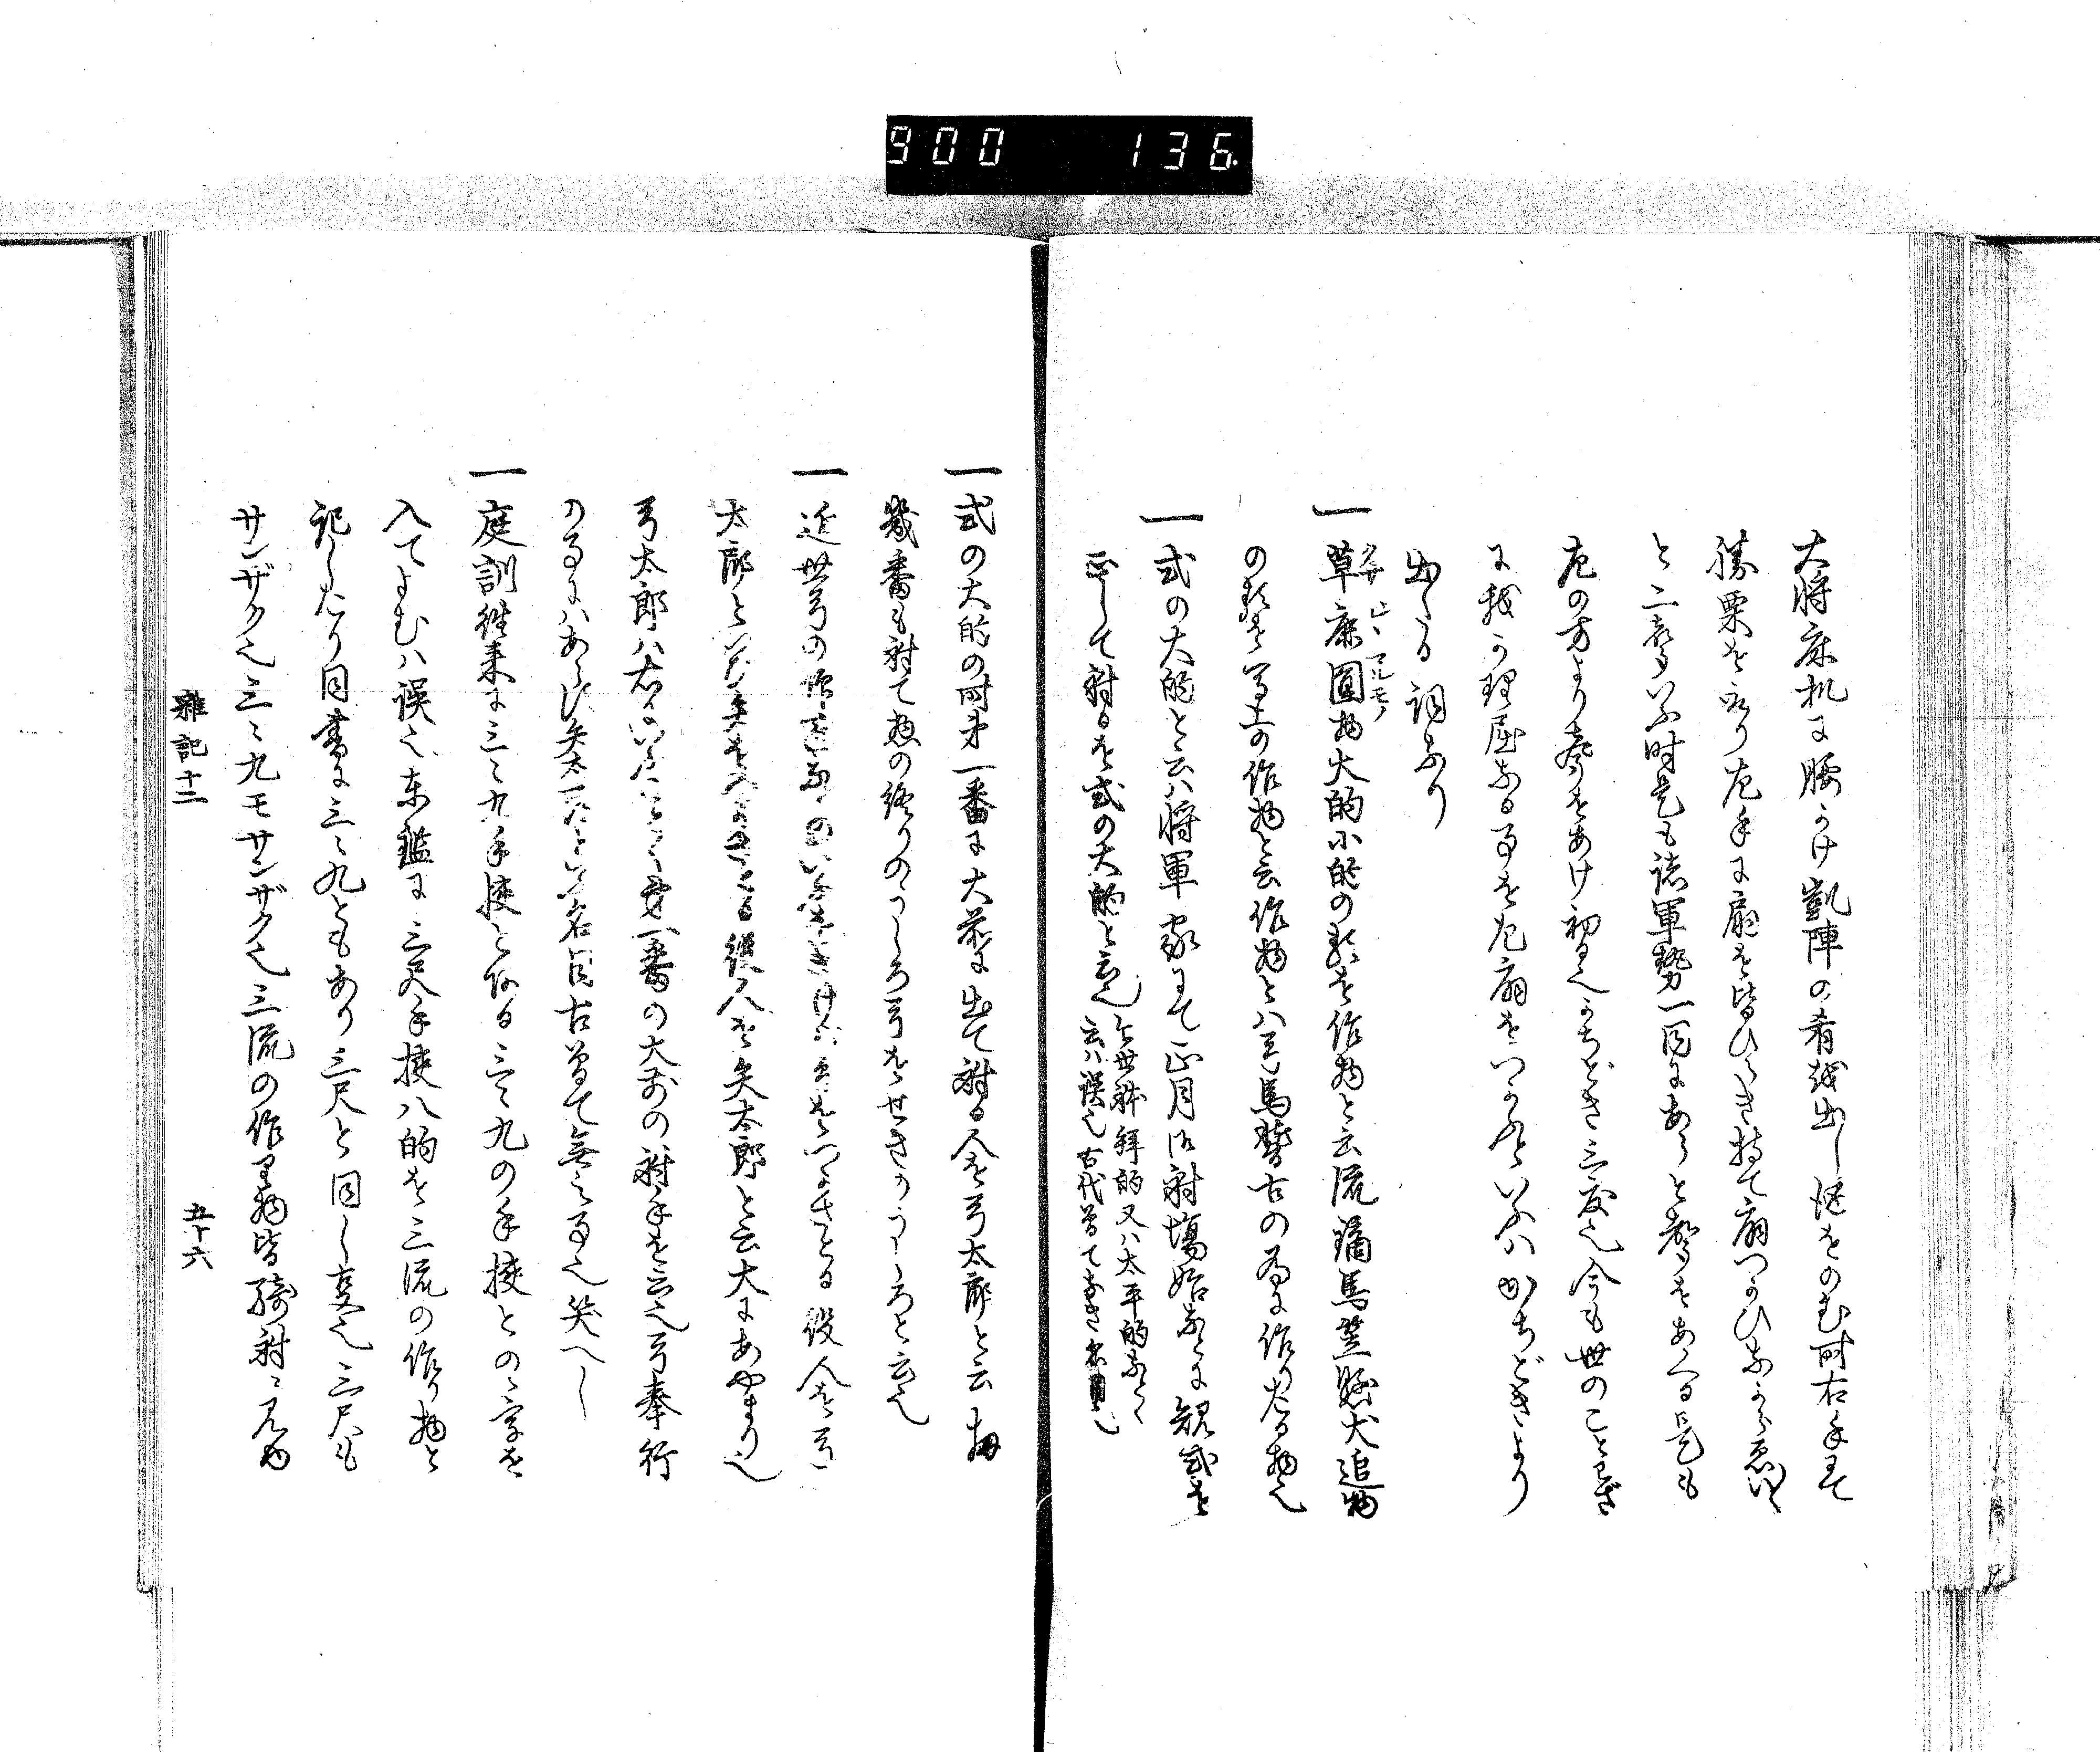 900 136.
大将床机に腰かけ凱陣の肴を出し酒をのむ時右手にて
勝栗を取り左手に扇を皆ひらき持て扇つかひながらゑい〳〵
と二声いふ時是も諸軍勢一同にあゝと声をあくる是も
左の方より声をあけ初る也かちどき三度也今も世のことわざ
に我か理屈なる事を左扇をつかふといふハかちどきより
出たる詞なり
一草鹿圓物大的小的の類を作物と云流鏑馬笠懸犬追物
クサ シヽ マルモノ
の類を 作物と云作物とハ弓馬稽古の為に作りたる物也
一式の大的と云ハ将軍家にて正月御射場始などに規式を
正して射るを式の大的と云也
今世歩拝的又ハ太平的などゝ
云ハ誤也古代曽てなき名目也
一式の大的の時第一番に大前に出て射る人を弓太郎と云扨
幾番も射て惣の終りのうしろ弓をせきのうしろと云也
一近世弓の をつよくさる役人を弓
太郎といひ矢を る役人を矢太郎と云大にあやまり也
弓太郎ハ右にいふことく第一番の大前の射手を云也弓奉行
の事にハあらず矢太郎といふ名目古曽て無之事也笑へし
一庭訓往来に三ミ九手挟とある三ミ九の手挟とのゝ字を
入てよむハ誤也東鑑に三尺手挟八的を三流の作り物と
記したり同書に三ミ九ともあり三尺と同し事也三尺も
サンザク也三ミ九モサンザク也三流の作り物皆騎射ニ用
雑記十二
五十六